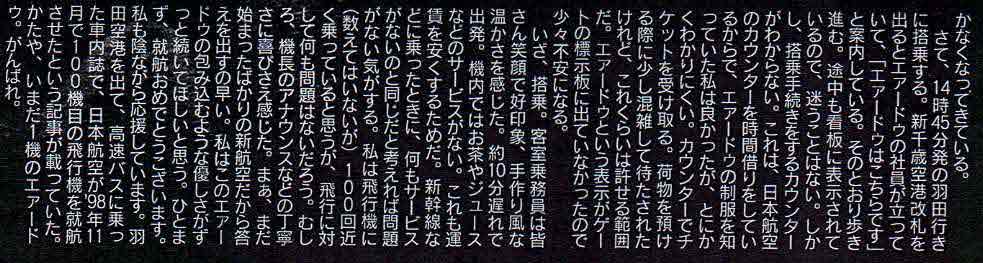 かなくなってきている。
　さて、14時45分発の羽田行き
に搭乗する。新千歳空港改札を
出るとエアードゥの社員が立って
いて、「エアードゥはこちらです」
と案内している。そのとおり歩き
進む。途中も看板に表示されて
いるので、迷うことはない。しか
し、搭乗手続きをするカウンター
がわからない。これは、日本航空
のカウンターを時間借りをしてい
るからで、エアードゥの制服を知
っていた私は良かったが、とにか
くわかりにくい。カウンターでチ
ケットを受け取る。荷物を預け
る際に少し混雑して待たされた
けれど、これくらいは許せる範囲
だ。エアードゥという表示がゲー
トの標示板に出ていなかったので
少々不安になる。
　いざ、搭乗。客室乗務員は皆
さん笑顔で好印象、手作り風な
温かさを感じた。約10分遅れで
出発。機内ではお茶やジュース
などのサービスがない。これも運
賃を安くするためだ。新幹線な
どに乗ったときに、何もサービス
がないのと同じだと考えれば問題
がない気がする。私は飛行機に
（数えてはいないが）100回近
く乗っていると思うが、飛行に対
して何も問題はないだろう。むし
ろ、機長のアナウンスなどの丁寧
さに喜びさえ感じた。まぁ、まだ
始まったばかりの新航空だから答
えを出すの早い。私はこのエアー
ドゥの包み込むような優しさがず
っと続いてほしいと思う。ひとま
ず、就航おめでとうございます。
私も陰ながら応援しています。羽
田空港を出て、高速バスに乗っ
た車内誌で、日本航空が'98年11
月で100機目の飛行機を就航
させたという記事が載っていた。
かたや、いまだ1機のエアード
ゥ。がんばれ。